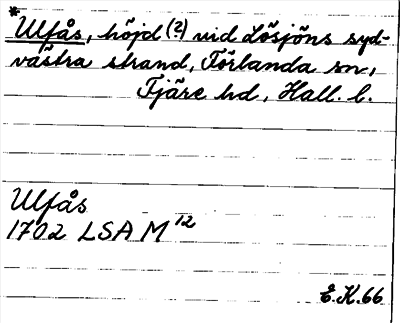 *Ulfås, höjd (?) vid Lösjöns syd-
västra strand, Förlanda sn,
Fjäre hd, Hall. l.
Ulfås
1702 LSA M 12
E.K.66